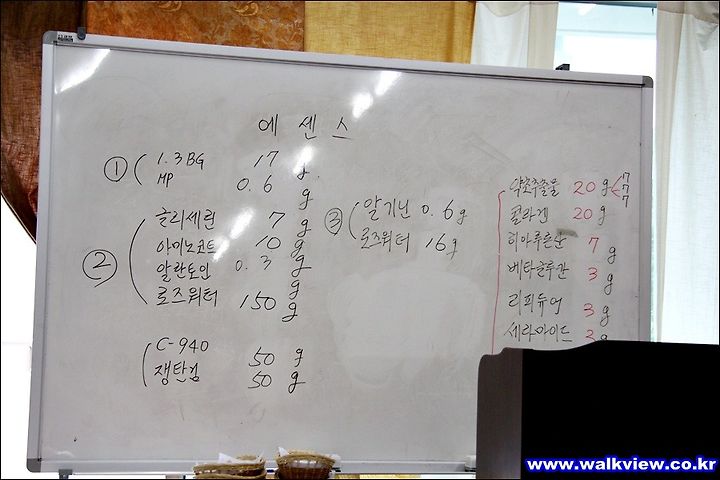 에센스
① 1.3BG 17 g.
MP 0.6 g
② 글리세린 7 g
아미노코트 10 g
알란토인 0.3 g
로즈워터 150 g
C-940 50 g
쟁탄검 50 g
③ 알기닌 0.6 g
로즈워터 16 g
약초추출물 20 g 7 7 7
콜라겐 20 g
히아루론산 7 g
베타글루칸 3 g
리피듀어 3 g
세라마이드 3 g
www.walkview.co.kr